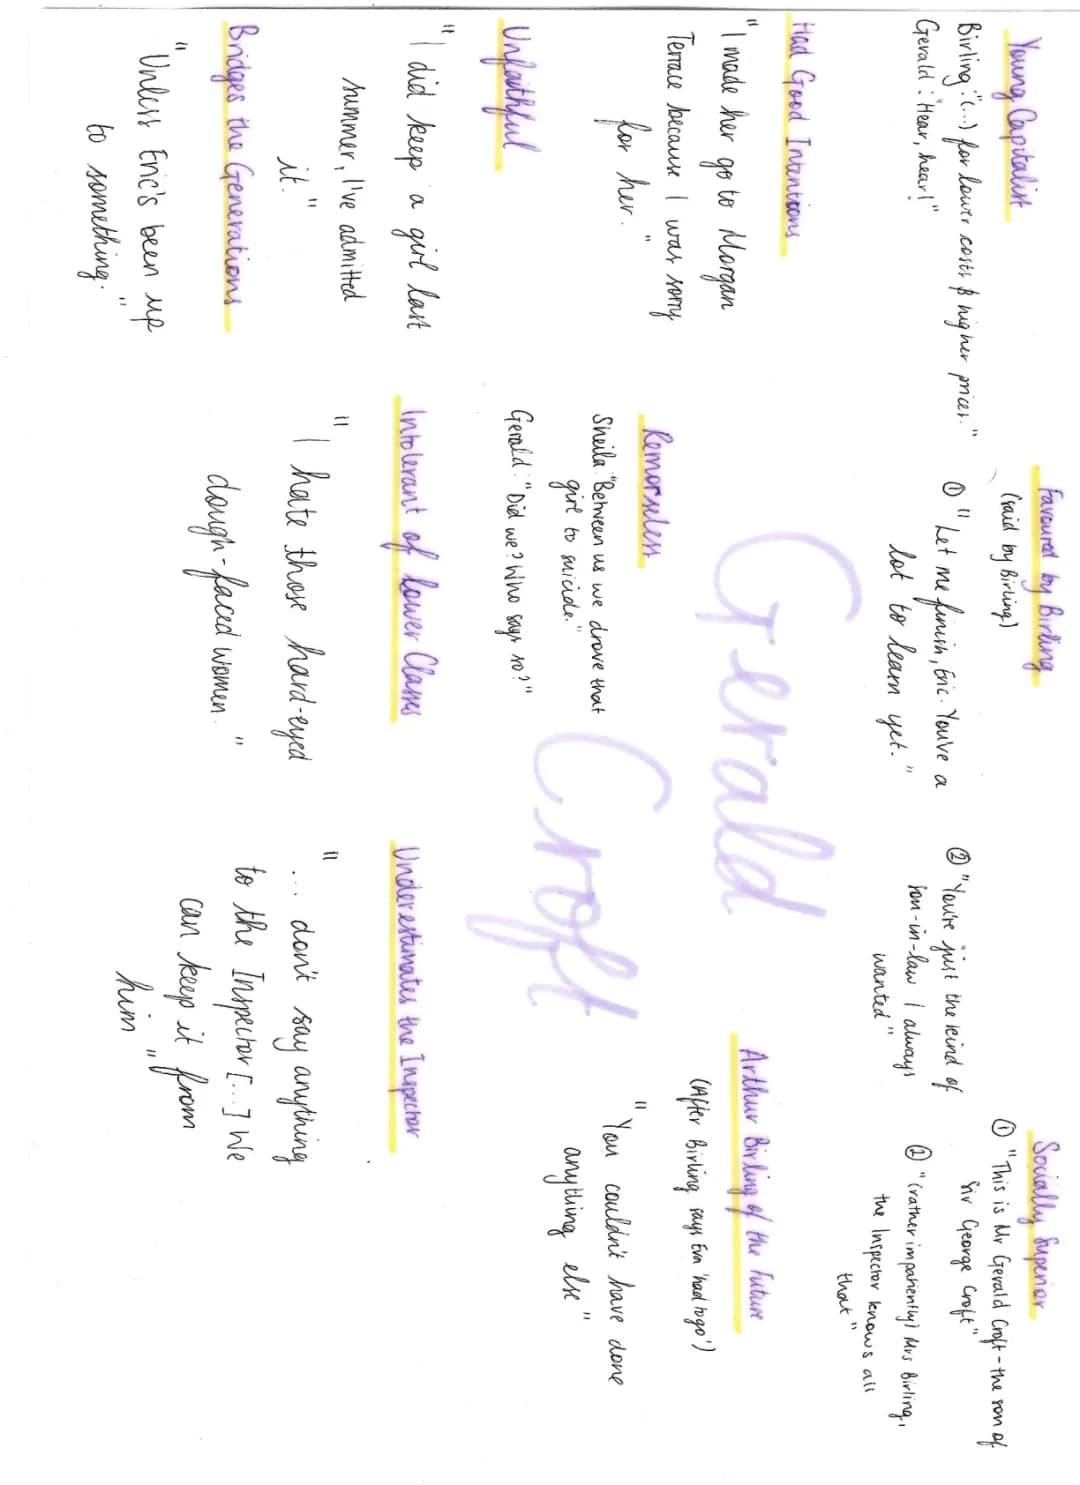 Young Capitalist
Birling: "(...) for lower costs & higher prices."
Gerald: "Hear, hear!"
Favoured by Birling
(said by Birling)
① "Let me finish, Eric. You've a
lot to learn yet."
② "You're just the kind of
son-in-law I always
wanted"
Socially Superior
① "This is Mr Gerald Croft - the son of
Sir George Croft"
② "(rather impatiently) Mrs Birling,
the Inspector knows all
that"
Had Good Intentions
"I made her go to Morgan
Terrace because I was sorry
for her."
Gerald
Croft
Arthur Birling of the Future
(After Birling says Eva 'had to go')
"You couldn't have done
anything else"
Remorseless
Sheila: "Between us we drove that
girl to suicide."
Gerald: "Did we? Who says so?"
Unfaithful
"I did keep a girl last
summer, I've admitted
it."
Intolerant of Lower Classes
"I hate those hard-eyed
dough-faced women."
Underestimates the Inspector
"... don't say anything
to the Inspector [...] We
can keep it from
him"
Bridges the Generations
"Unless Eric's been up
to something."